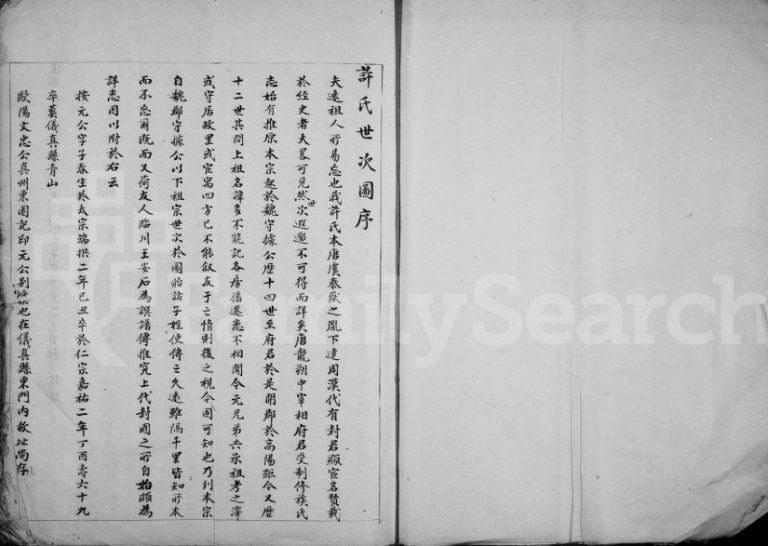 許氏世次圖序
夫遠祖人所易忘也我許氏本唐虞泰嶽之胤下逮周漢代有封君顯宦名賢載
於經史者夫畧可見然世次遐邈不可得而詳矣唐龍朔中宰相府君受制修族氏
志始有推原本宗起於魏守據公歷十四世至府君於是開郡於高陽距今又歷
十二世其間上祖名諱多不能記各房播遷悉不相聞今元兄弟共承祖考之澤
或守居故里或宦寓四方已不能叙友于之情則後之視今固可知也乃列本宗
自魏郡守據公以下祖宗世次於圖貽諸子姪使傳之久遠雖隔千里皆知所本
而不忘爾既而又荷友人臨川王安石為譔譜傳推究上代封國之所自始頗為
詳悉因以附於右云
按元公字子春生於太宗端拱二年己丑卒於仁宗嘉祐二年丁酉壽六十九
卒葬儀真縣青山
歐陽文忠公真州東園記即元公剏也在儀真縣東門內故址尚存
FamilySearch